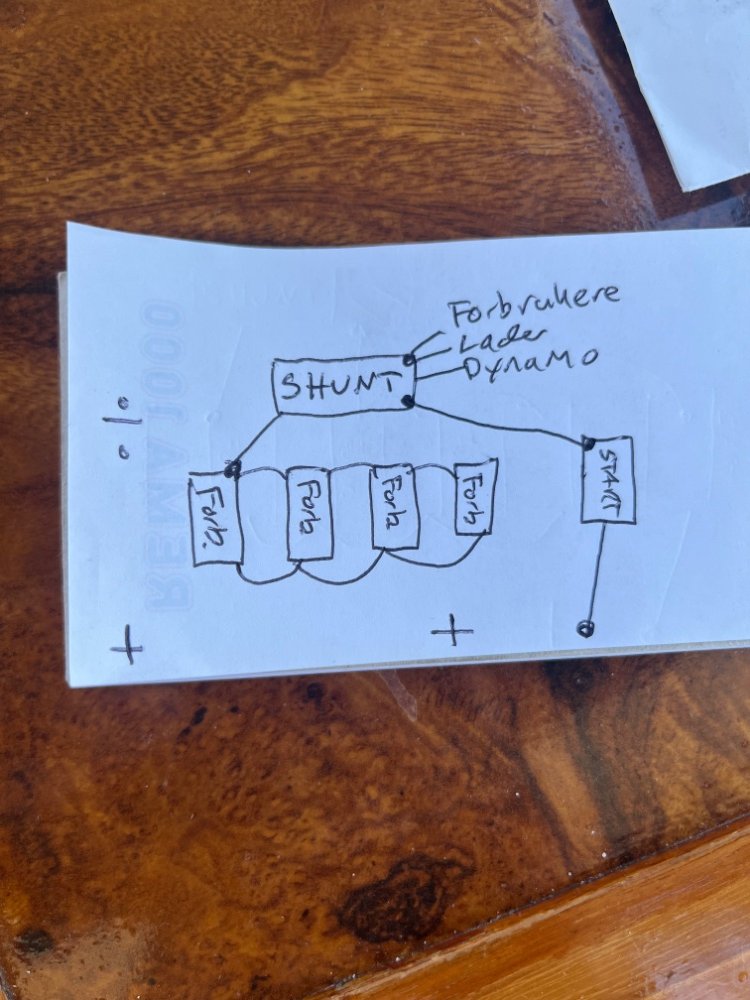 Forbrukere
Lader
Dynamo
SHUNT
Forb.
Forb
Forb
Forb
START
÷
+
+
REMA 1000